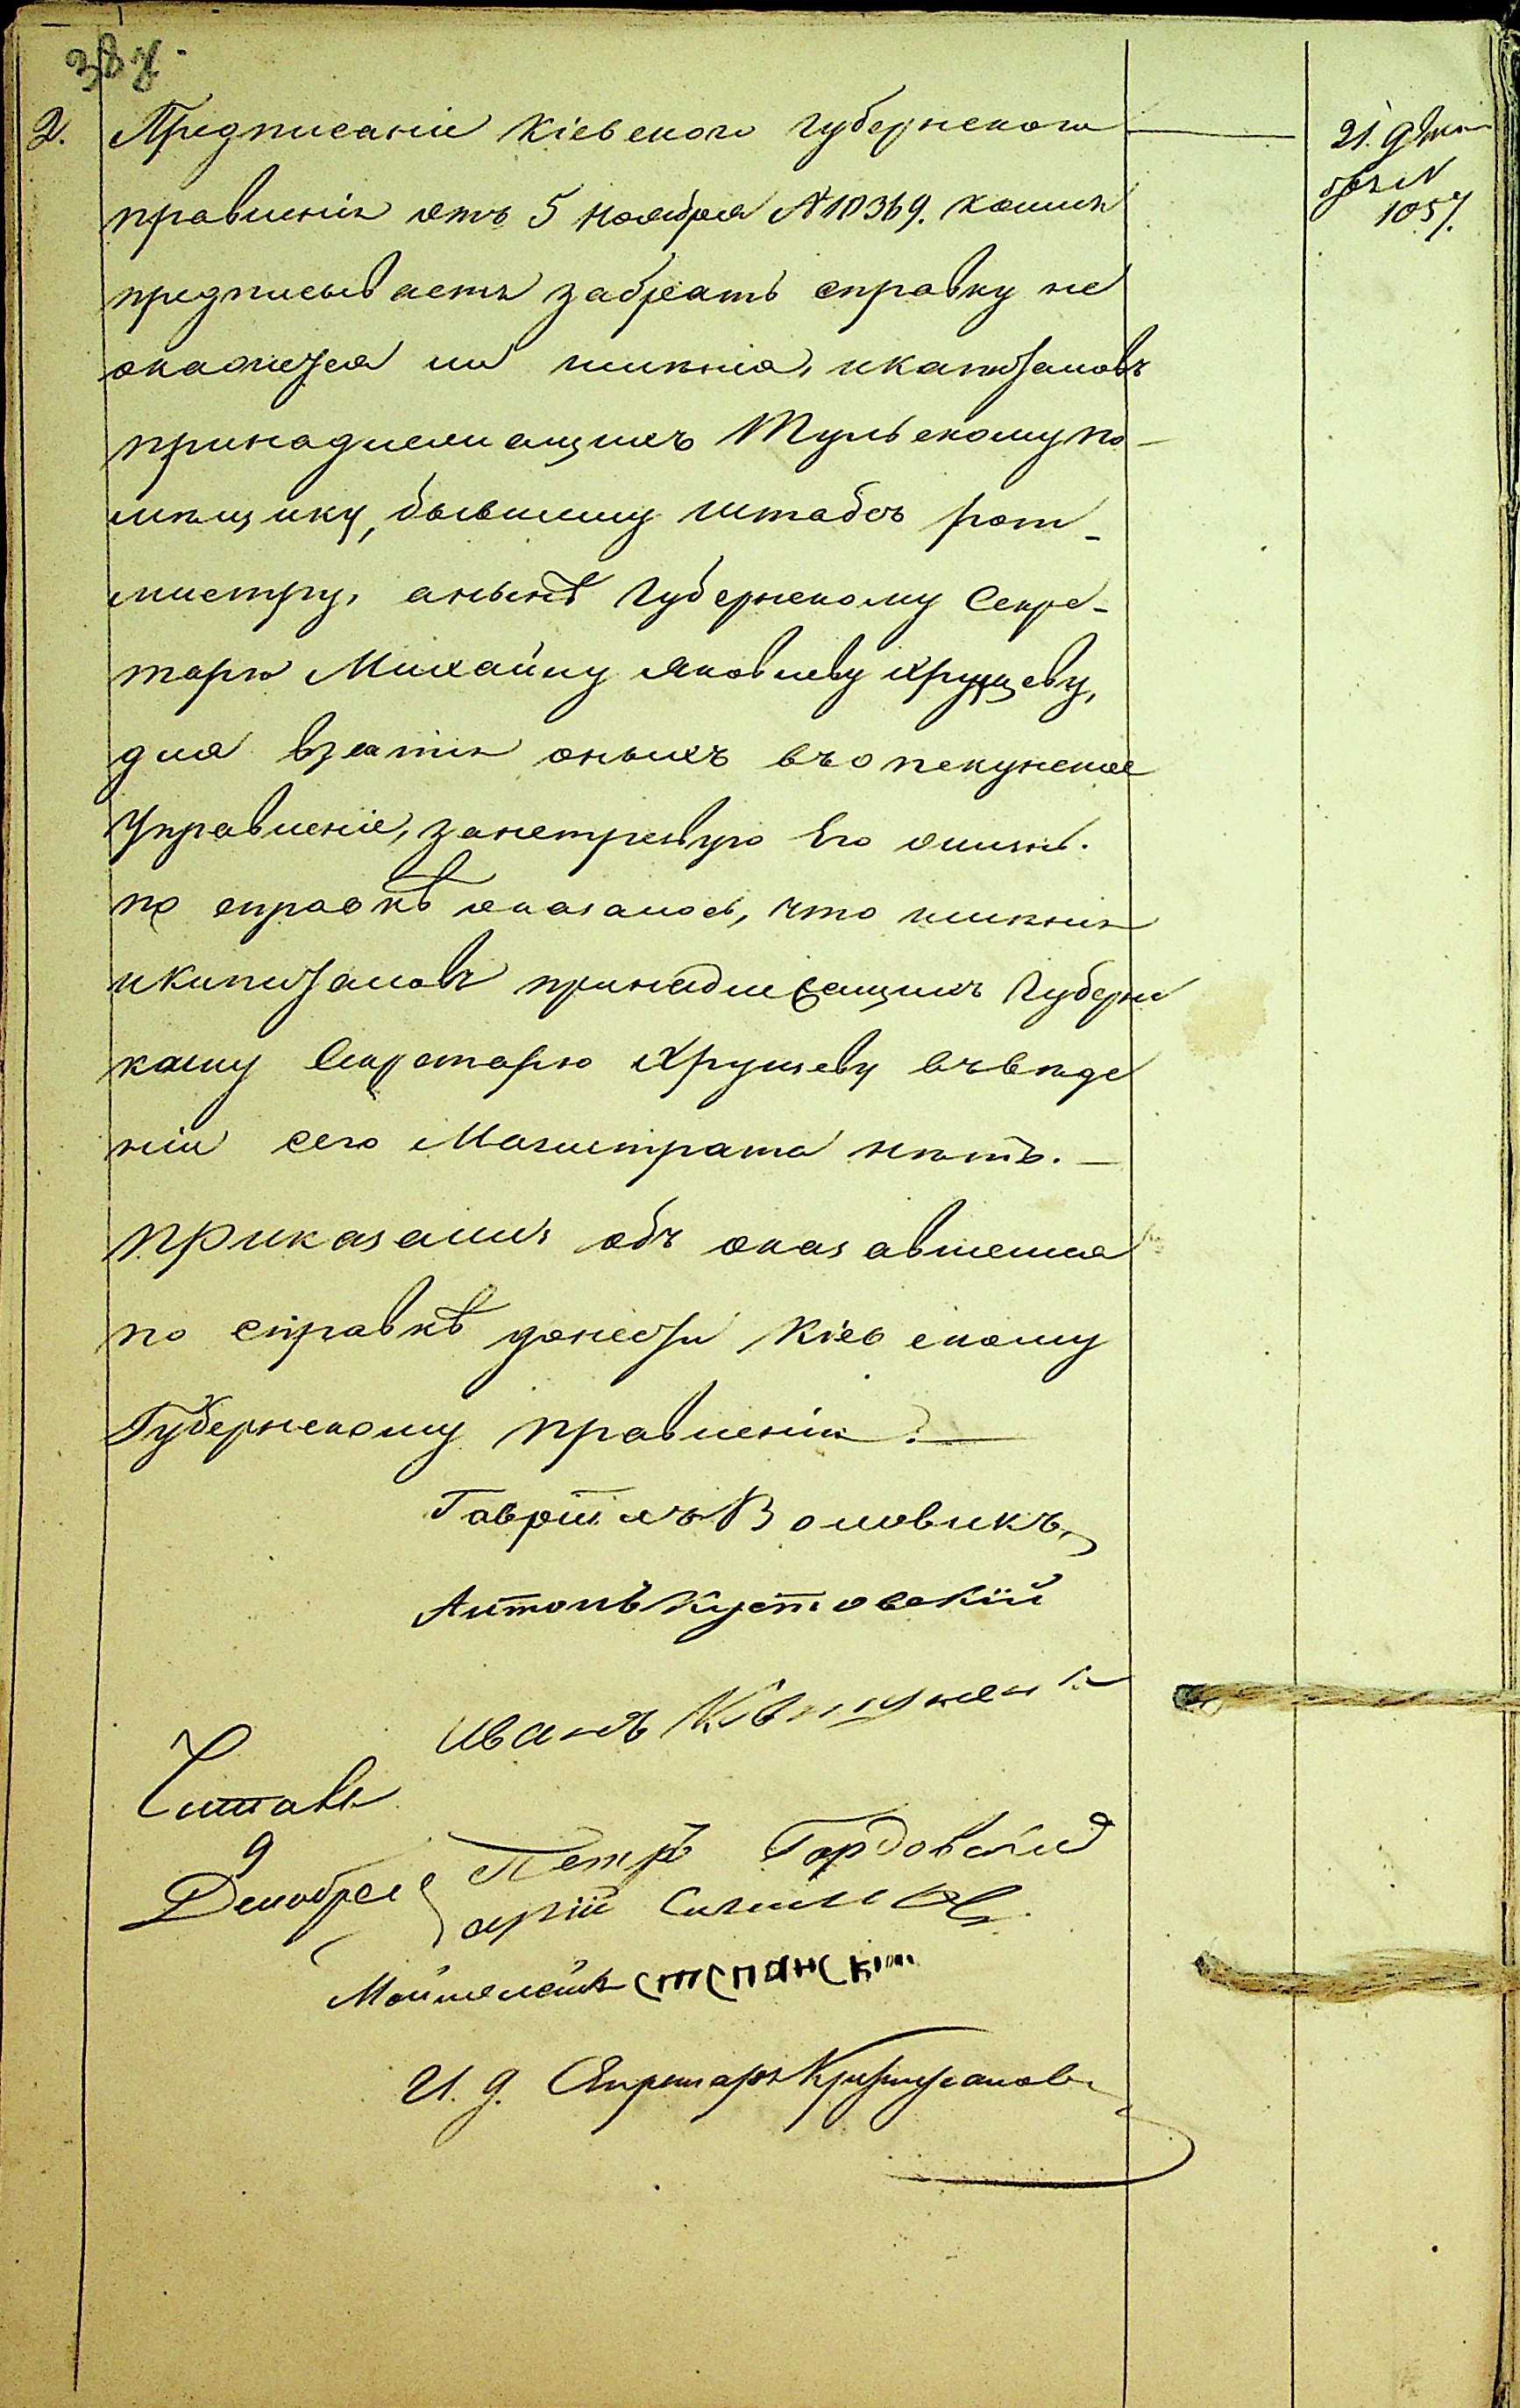 387.
2. Предписаніе Кіевскаго губернскаго
правленія отъ 5 Ноября № 10369. коимъ
предписываетъ забрать справку не
окажется ли имѣнія, икапиталовъ
принадлежащихъ Тульскому по-
мѣщику, бывшему штабсъ рот-
мистру, анынѣ Губернскому Секре-
тарю Михайлу Яковлеву Хрущеву,
для взятія оныхъ въопекунское
Управленіе, занетрезвую Его жизнь.
по справкѣ оказалось, что имѣнія
икапиталовъ принадлежащихъ Губернс
кому Секретарю Хрущеву въвѣде
ніи сего Магистрата нѣтъ. —
приказали: объ оказавшемся
по справкѣ донести Кіевскому
Губернскому правленію. —
21.
№
1057.
Гавріилъ Воловикъ
Антонъ Кустовскій
Иванъ
Читалъ
9
Декабря
Петръ Гордовскій
И. д. Секретаря